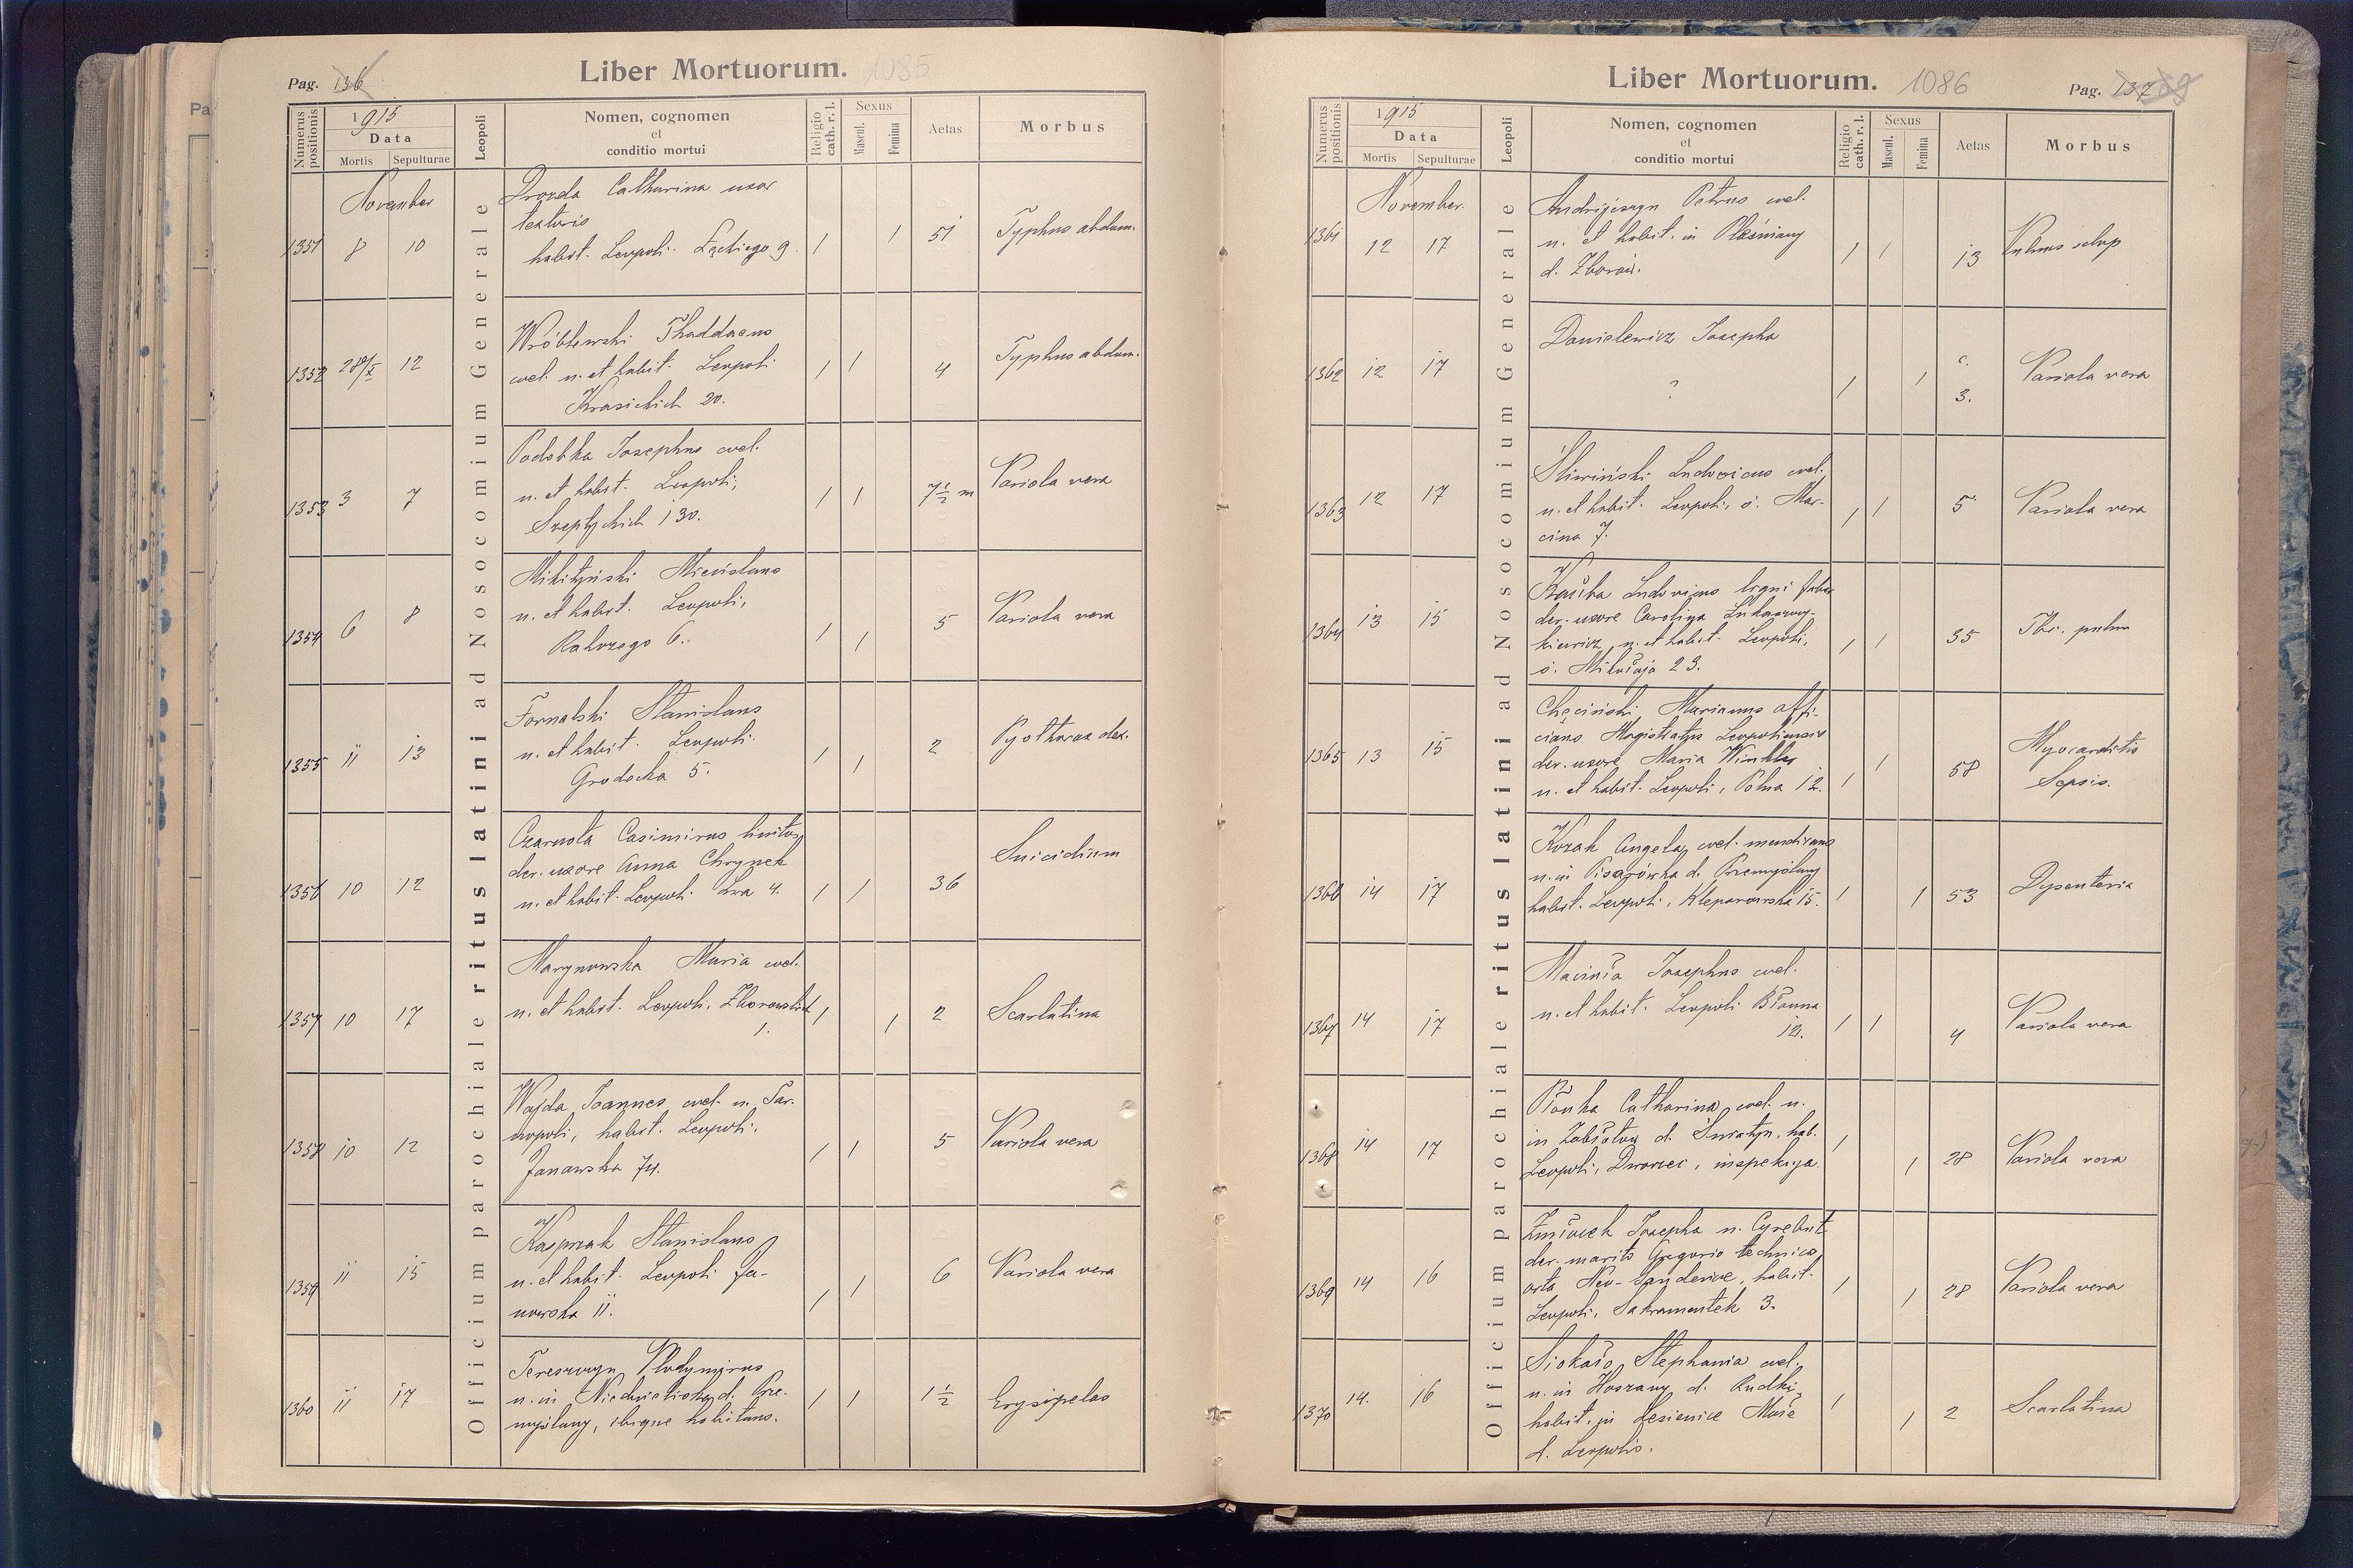 Liber Mortuorum. 1085
Pag. 136
Numerus positionis
1915
Data
Mortis Sepulturae
Leopoli
Nomen, cognomen
et
conditio mortui
Religio cath. r. l.
Sexus
Mascul. Femina
Aetas
Morbus
Officium parochiale ritus latini ad Nosocomium Generale
November
Drozda Catharina uxor
textoris
1351 8 10 habit. Leopoli. Łąckiego 9. 1 1 51 Typhus abdom.
Wróblewski Thaddaeus
1352 28/X 12 cael. n. et habit. Leopoli 1 1 4 Typhus abdom.
Krasickich 20.
Podobka Josephus cael.
1353 3 7 n. et habit. Leopoli, 1 1 7½ m Variola vera
Szeptyckich 130.
Mikityński Miecislaus
1354 6 8 n. et habit. Leopoli, 1 1 5 Variola vera
Kahozego 6.
Fornalski Stanislaus
1355 11 13 n. et habit. Leopoli. 1 1 2 Pyothorax dex.
Grodecka 5.
Czarnota Casimirus
der. uxore Anna Chrynek
1356 10 12 n. et habit. Leopoli. Lwa 4. 1 1 36 Suicidium
Marynowska Maria cael.
1357 10 17 n. et habit. Leopoli, Zborowskich 1 1 2 Scarlatina
1.
Wajda Joannes cael. n. Tar-
1358 10 12 nopoli, habit. Leopoli, 1 1 5 Variola vera
Janowska 74.
Kasprzak Stanislaus
1359 11 15 n. et habit. Leopoli Ja- 1 1 6 Variola vera
nowska 11.
Tereszczyn Vlodymirus
1360 11 17 n. in d. Prze- 1 1 1½ Erysipelas
myślany, ibique habitans.
Liber Mortuorum. 1086
Pag. 137
Numerus positionis
1915
Data
Mortis Sepulturae
Leopoli
Nomen, cognomen
et
conditio mortui
Religio cath. r. l.
Sexus
Mascul. Femina
Aetas
Morbus
Officium parochiale ritus latini ad Nosocomium Generale
November.
Andrijczyn Petrus cael.
1361 12 17 n. et habit. in Pleśniany 1 1 13 Vulnus sclop
d. Zborów.
Danielewicz Josepha
1362 12 17 ? 1 1 c. 3. Variola vera
Śliwiński Ludovicus cael.
1363 12 17 n. et habit. Leopoli, ś. Mar- 1 1 5 Variola vera
cina 7.
Kaśba Ludovicus ligni faber
der. uxore Carolina Lukaszwy-
1364 13 15 kiewicz, n. et habit. Leopoli, 1 1 35 Tbc. pulm
ś. Mikołaja 23.
Chęciński Marianus offi-
cians Magistratus Leopoliensis
1365 13 15 der. uxore Maria Winkler 1 1 58 Myocarditis
n. et habit. Leopoli, Polna 12. Sepsis.
Kozak Angela, cael. mendicans
1366 14 17 n. in Pisarówka d. Przemyślany 1 1 53 Dysenteria
habit. Leopoli, Kleparowska 15.
Maciuła Josephus cael.
1367 14 17 n. et habit. Leopoli Błonna 1 1 4 Variola vera
12.
Płonka Catharina, cael. n.
1368 14 17 in Zabłotow d. Śniatyn, hab. 1 1 28 Variola vera
Leopoli, Dworzec, inspekcja.
Zmiőcek Josepha n. Cyrebut
der. marito Gregorio technico,
1369 14 16 orta Neo-Sanderiae, habit. 1 1 28 Variola vera
Leopoli, Sakramentek 3.
Siokało Stephania cael.
n. in Hoszany d. Rudki,
1370 14. 16 habit. in Lesienice Małe 1 1 2 Scarlatina
d. Leopolis.